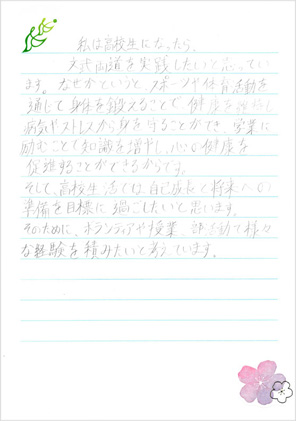 私は高校生になったら、
文武両道を実践したいと思ってい
ます。なぜかというと、スポーツや体育活動を
通じて身体を鍛えることで健康を維持し
病気やストレスから身を守ることができ、学業に
励むことで知識を増やし、心の健康を
促進することができるからです。
そして、高校生活では自己成長と将来への
準備を目標に過ごしたいと思います。
そのために、ボランティアや授業、部活動で様々
な経験を積みたいと考えています。